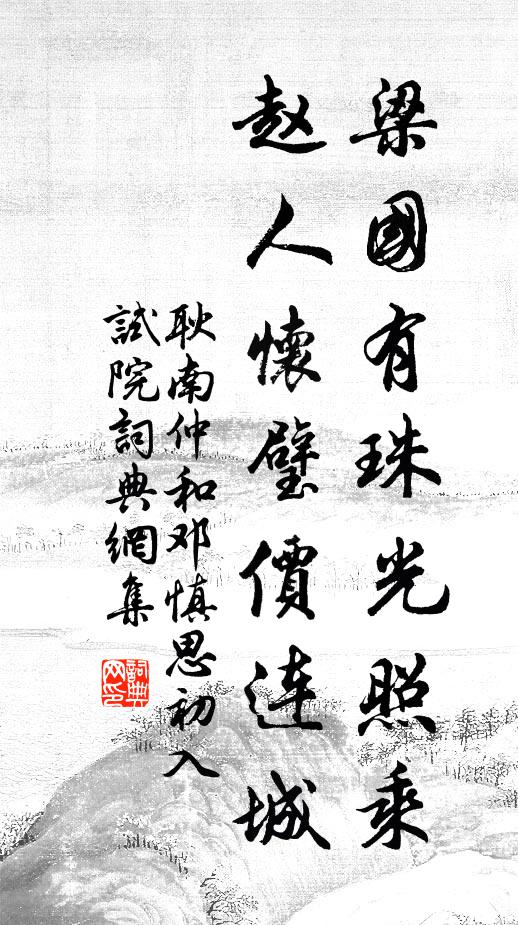 梁國有珠光照乘
赵人懷璧價連城
耿南仲和邓慎思初入
試院詞典網集
詞典网印